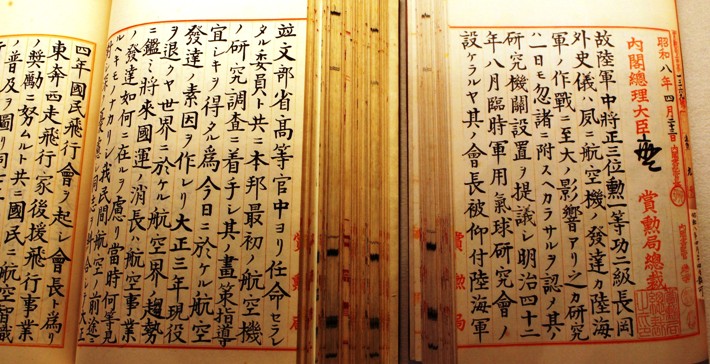 昭和八年四月
內閣總理大臣
賞勲局總裁
故陸軍中將正三位勲一等功二級長岡
外史儀ハ夙ニ航空機ノ發達カ陸海
軍ノ作戰ニ至大ノ影響アリ之カ研究
ハ一日モ忽諸ニ附スヘカラサルヲ認メ其ノ
研究機關設置ヲ提議シ明治四十二
年八月臨時軍用氣球研究會ノ
設ケラルヤ其ノ會長被仰付陸海軍
賞勲局
竝文部省高等官中ヨリ任命セラレ
タル委員ト共ニ本邦最初ノ航空機
ノ研究調査ニ着手シ其ノ畫策指導
宜シキヲ得タル爲今日ニ於ケル航空
發達ノ素因ヲ作レリ大正三年現役
ヲ退クヤ世界ニ於ケル航空界ノ趨勢
ニ鑑ミ將來國運ノ消長ハ航空事業
ノ發達如何ニ在ルヲ慮リ當時何等見
ルヘキモノナカリシ我民間航空ノ前途
四年國民飛行會ヲ起シ會長ト爲リ
東奔西走飛行家後援飛行事業
ノ奬勵ニ努ムルト共ニ國民ニ航空智識
ノ普及ヲ圖リ同